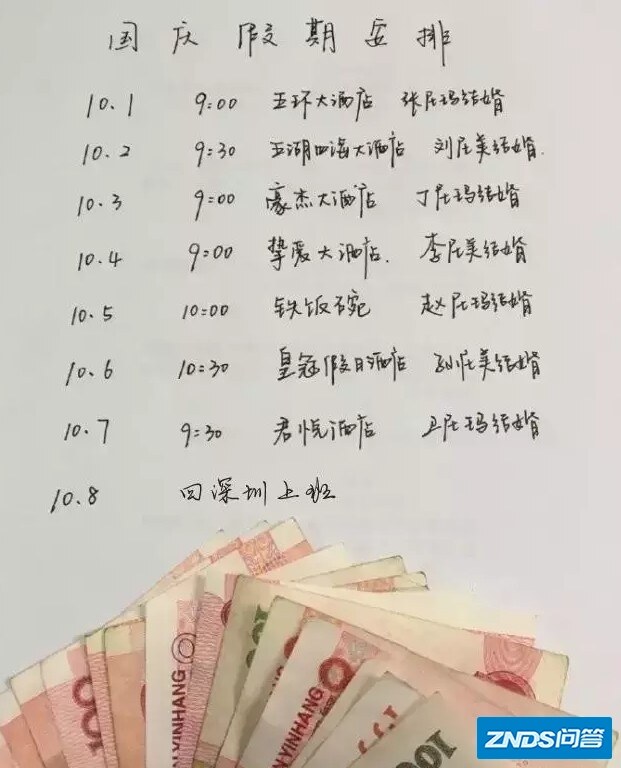 国庆假期安排
10.1 9:00 五环大酒店 张尼玛结婚
10.2 9:30 五湖四海大酒店 刘尼美结婚.
10.3 9:00 豪杰大酒店 丁尼玛结婚
10.4 9:00 挚爱大酒店. 李尼美结婚
10.5 10:00 铁饭碗 赵尼玛结婚
10.6 10:30 皇冠假日酒店 孙尼美结婚
10.7 9:30 君悦酒店 卫尼玛结婚
10.8 回深圳上班
YINHANG
N YINHANG
100
100
ZNDS问答